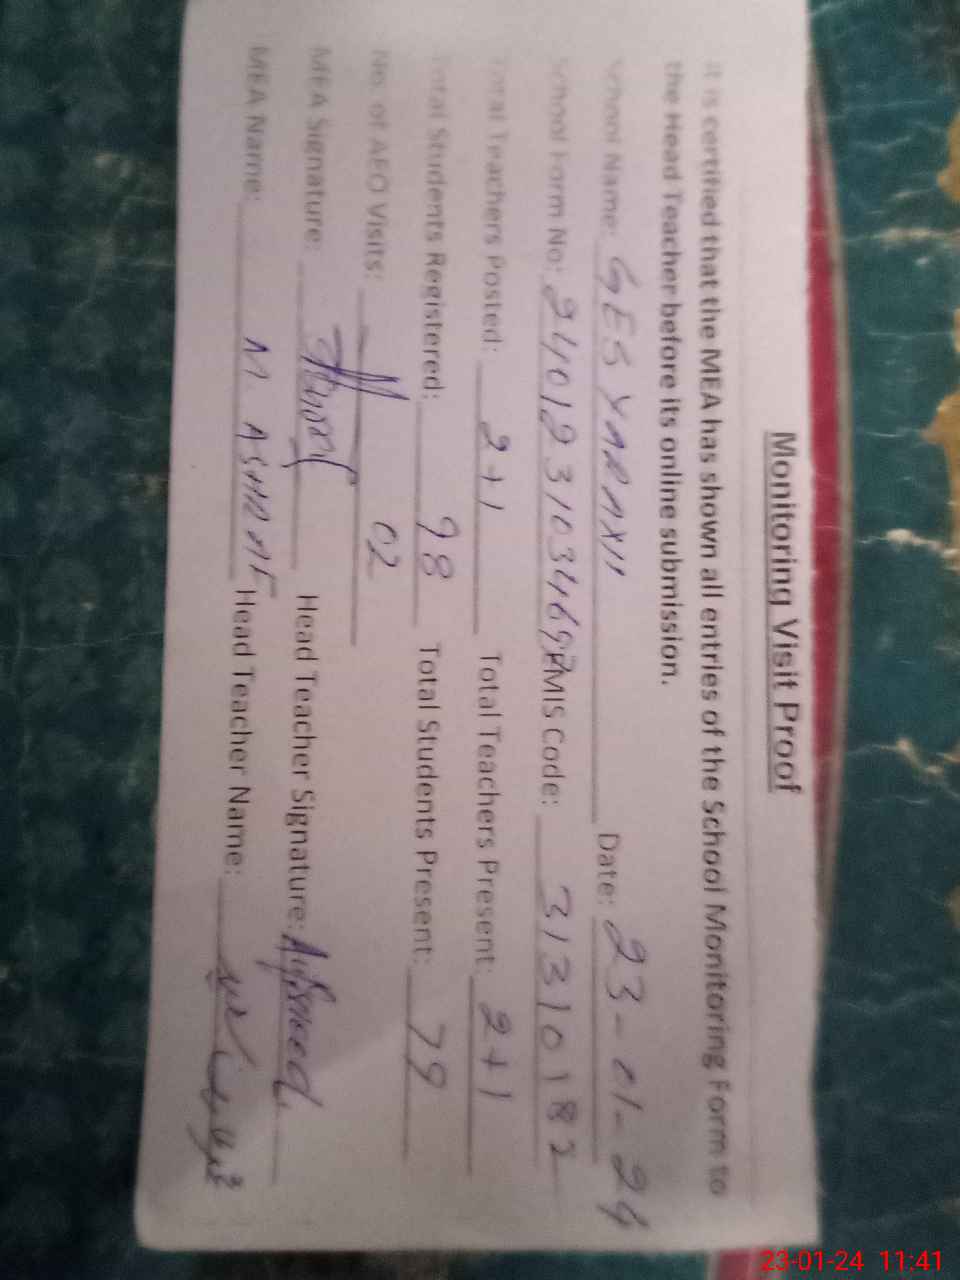 Monitoring Visit Proof
It is certified that the MEA has shown all entries of the School Monitoring Form to
the Head Teacher before its online submission.
School Name: GES YARAXII Date: 23-01-24
School Form No: EMIS Code: 31310182
Total Teachers Posted: 2+1 Total Teachers Present: 2+1
Total Students Registered: 98 Total Students Present: 79
No. of AEO Visits: 02
MEA Signature: Head Teacher Signature:
MEA Name: M. ASHRAF Head Teacher Name:
23-01-24 11:41